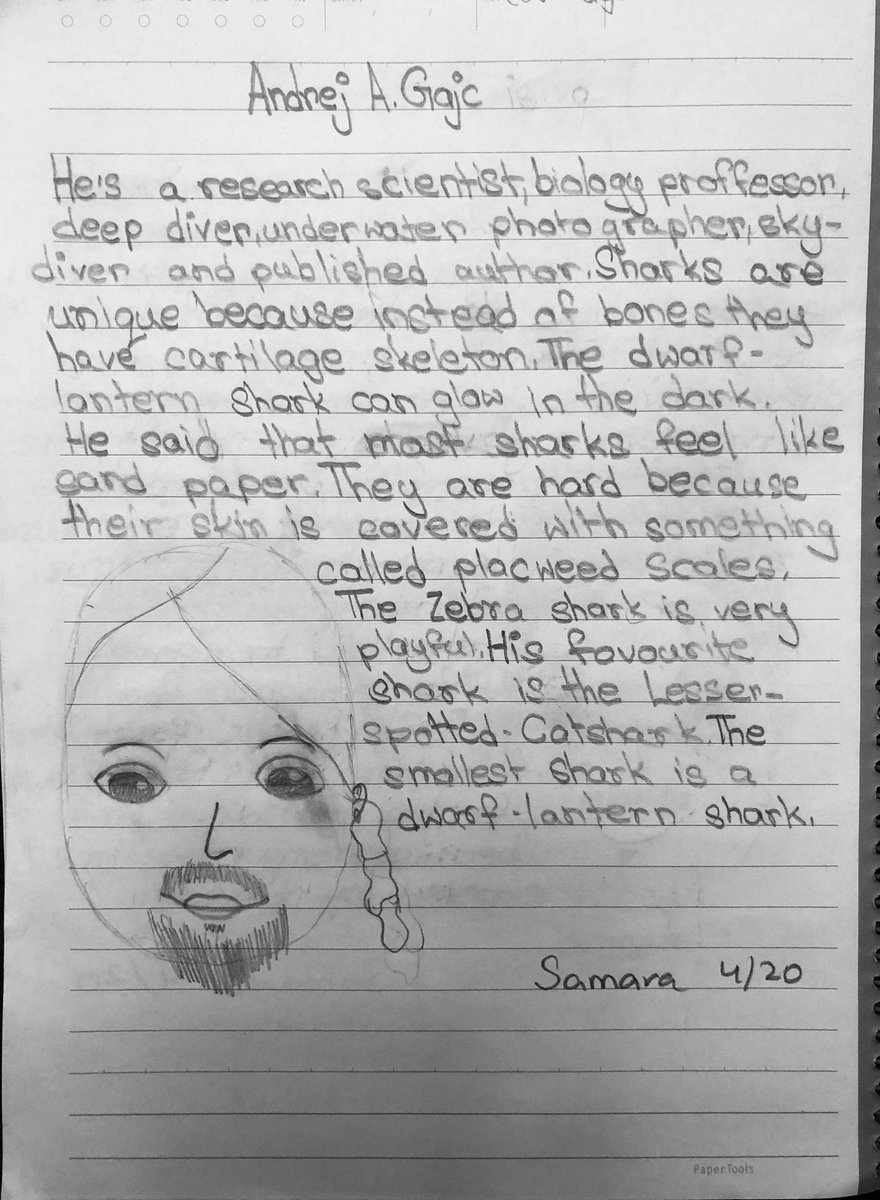 Andrej A. Gajc
He's a research scientist, biology proffessor,
deep diver, underwater photographer, sky-
diver and published author. Sharks are
unique because instead of bones they
have cartilage skeleton. The dwarf-
lantern shark can glow in the dark.
He said that most sharks feel like
sand paper. They are hard because
their skin is covered with something
called placweed scales.
The Zebra shark is very
playful. His favourite
shark is the Lesser-
spotted-Catshark. The
smallest shark is a
dwarf-lantern shark.
Samara 4/20
PaperTools